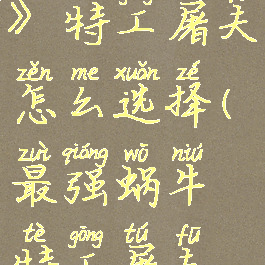 》特工屠夫
zěn me xuǎn zé
怎么选择(
zuì qiáng wō niú
最强蜗牛
tè gōng tú fū
特工屠夫